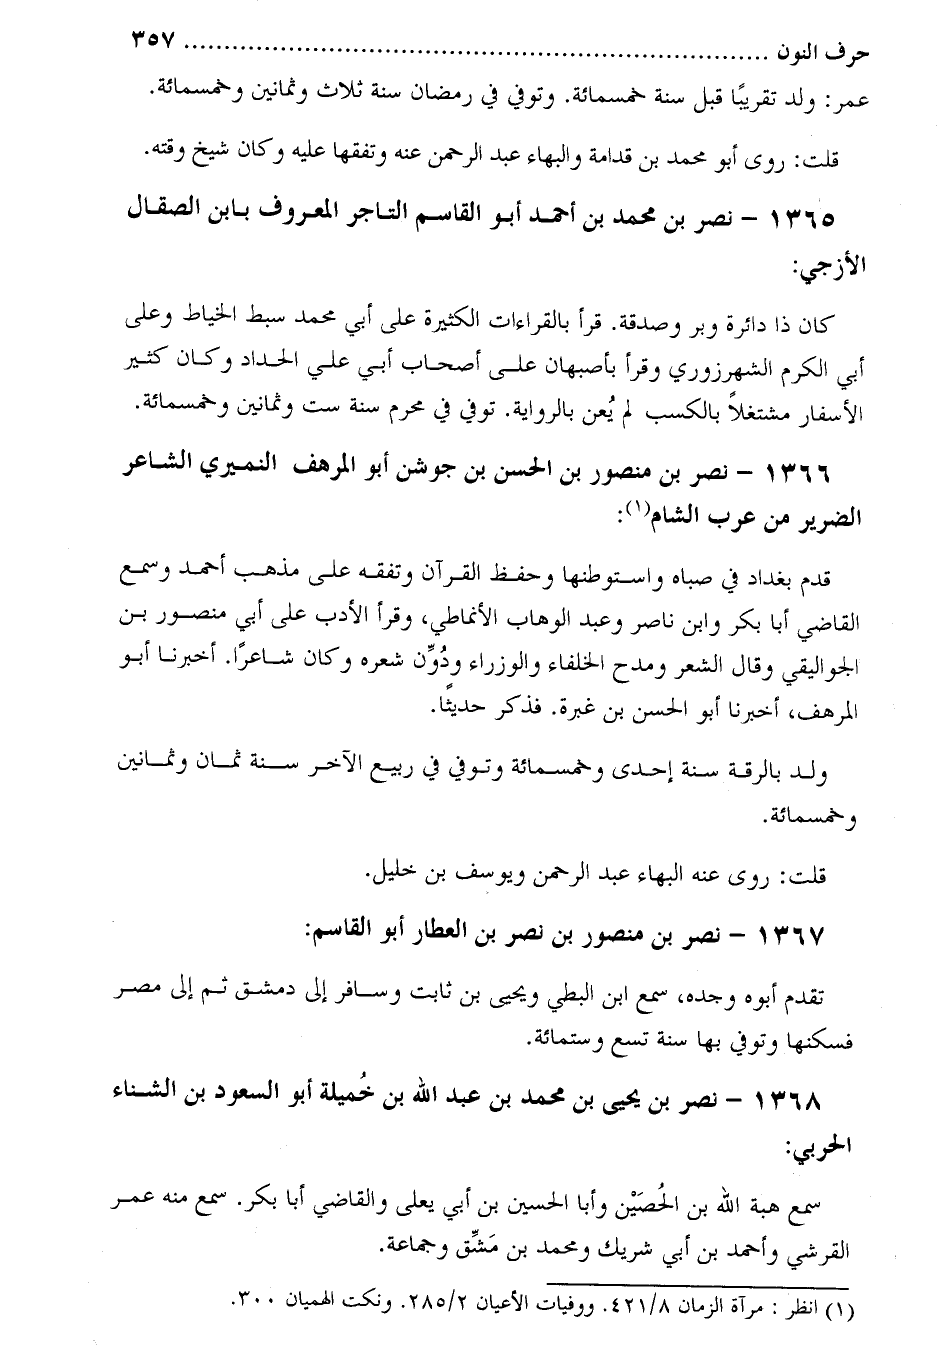 حرف النون ........................................................................ ٣٥٧
عمر: ولد تقريبًا قبل سنة خمسمائة. وتوفي في رمضان سنة ثلاث وثمانين وخمسمائة.
قلت: روى أبو محمد بن قدامة والبهاء عبد الرحمن عنه وتفقها عليه وكان شيخ وقته.
١٣٦٥ – نصر بن محمد بن أحمد أبو القاسم التاجر المعروف بابن الصقال
الأزجي:
كان ذا دائرة وبر وصدقة. قرأ بالقراءات الكثيرة على أبي محمد سبط الخياط وعلى
أبي الكرم الشهرزوري وقرأ بأصبهان على أصحاب أبي علي الحداد وكان كثير
الأسفار مشتغلاً بالكسب لم يُعن بالرواية. توفي في محرم سنة ست وثمانين وخمسمائة.
١٣٦٦ – نصر بن منصور بن الحسن بن جوشن أبو المرهف النميري الشاعر
الضرير من عرب الشام(١):
قدم بغداد في صباه واستوطنها وحفظ القرآن وتفقه على مذهب أحمد وسمع
القاضي أبا بكر وابن ناصر وعبد الوهاب الأنماطي، وقرأ الأدب على أبي منصور بن
الجواليقي وقال الشعر ومدح الخلفاء والوزراء ودُوِّن شعره وكان شاعرًا. أخبرنا أبو
المرهف، أخبرنا أبو الحسن بن غبرة. فذكر حديثًا.
ولد بالرقة سنة إحدى وخمسمائة وتوفي في ربيع الآخر سنة ثمان وثمانين
وخمسمائة.
قلت: روى عنه البهاء عبد الرحمن ويوسف بن خليل.
١٣٦٧ – نصر بن منصور بن نصر بن العطار أبو القاسم:
تقدم أبوه وجده، سمع ابن البطي ويحيى بن ثابت وسافر إلى دمشق ثم إلى مصر
فسكنها وتوفي بها سنة تسع وستمائة.
١٣٦٨ – نصر بن يحيى بن محمد بن عبد الله بن خُميلة أبو السعود بن الشناء
الحربي:
سمع هبة الله بن الحُصَيْن وأبا الحسين بن أبي يعلى والقاضي أبا بكر. سمع منه عمر
القرشي وأحمد بن أبي شريك ومحمد بن مَشِّق وجماعة.
(١) انظر : مرآة الزمان ٤٢١/٨. ووفيات الأعيان ٢٨٥/٢. ونكت الهميان ٣٠٠.